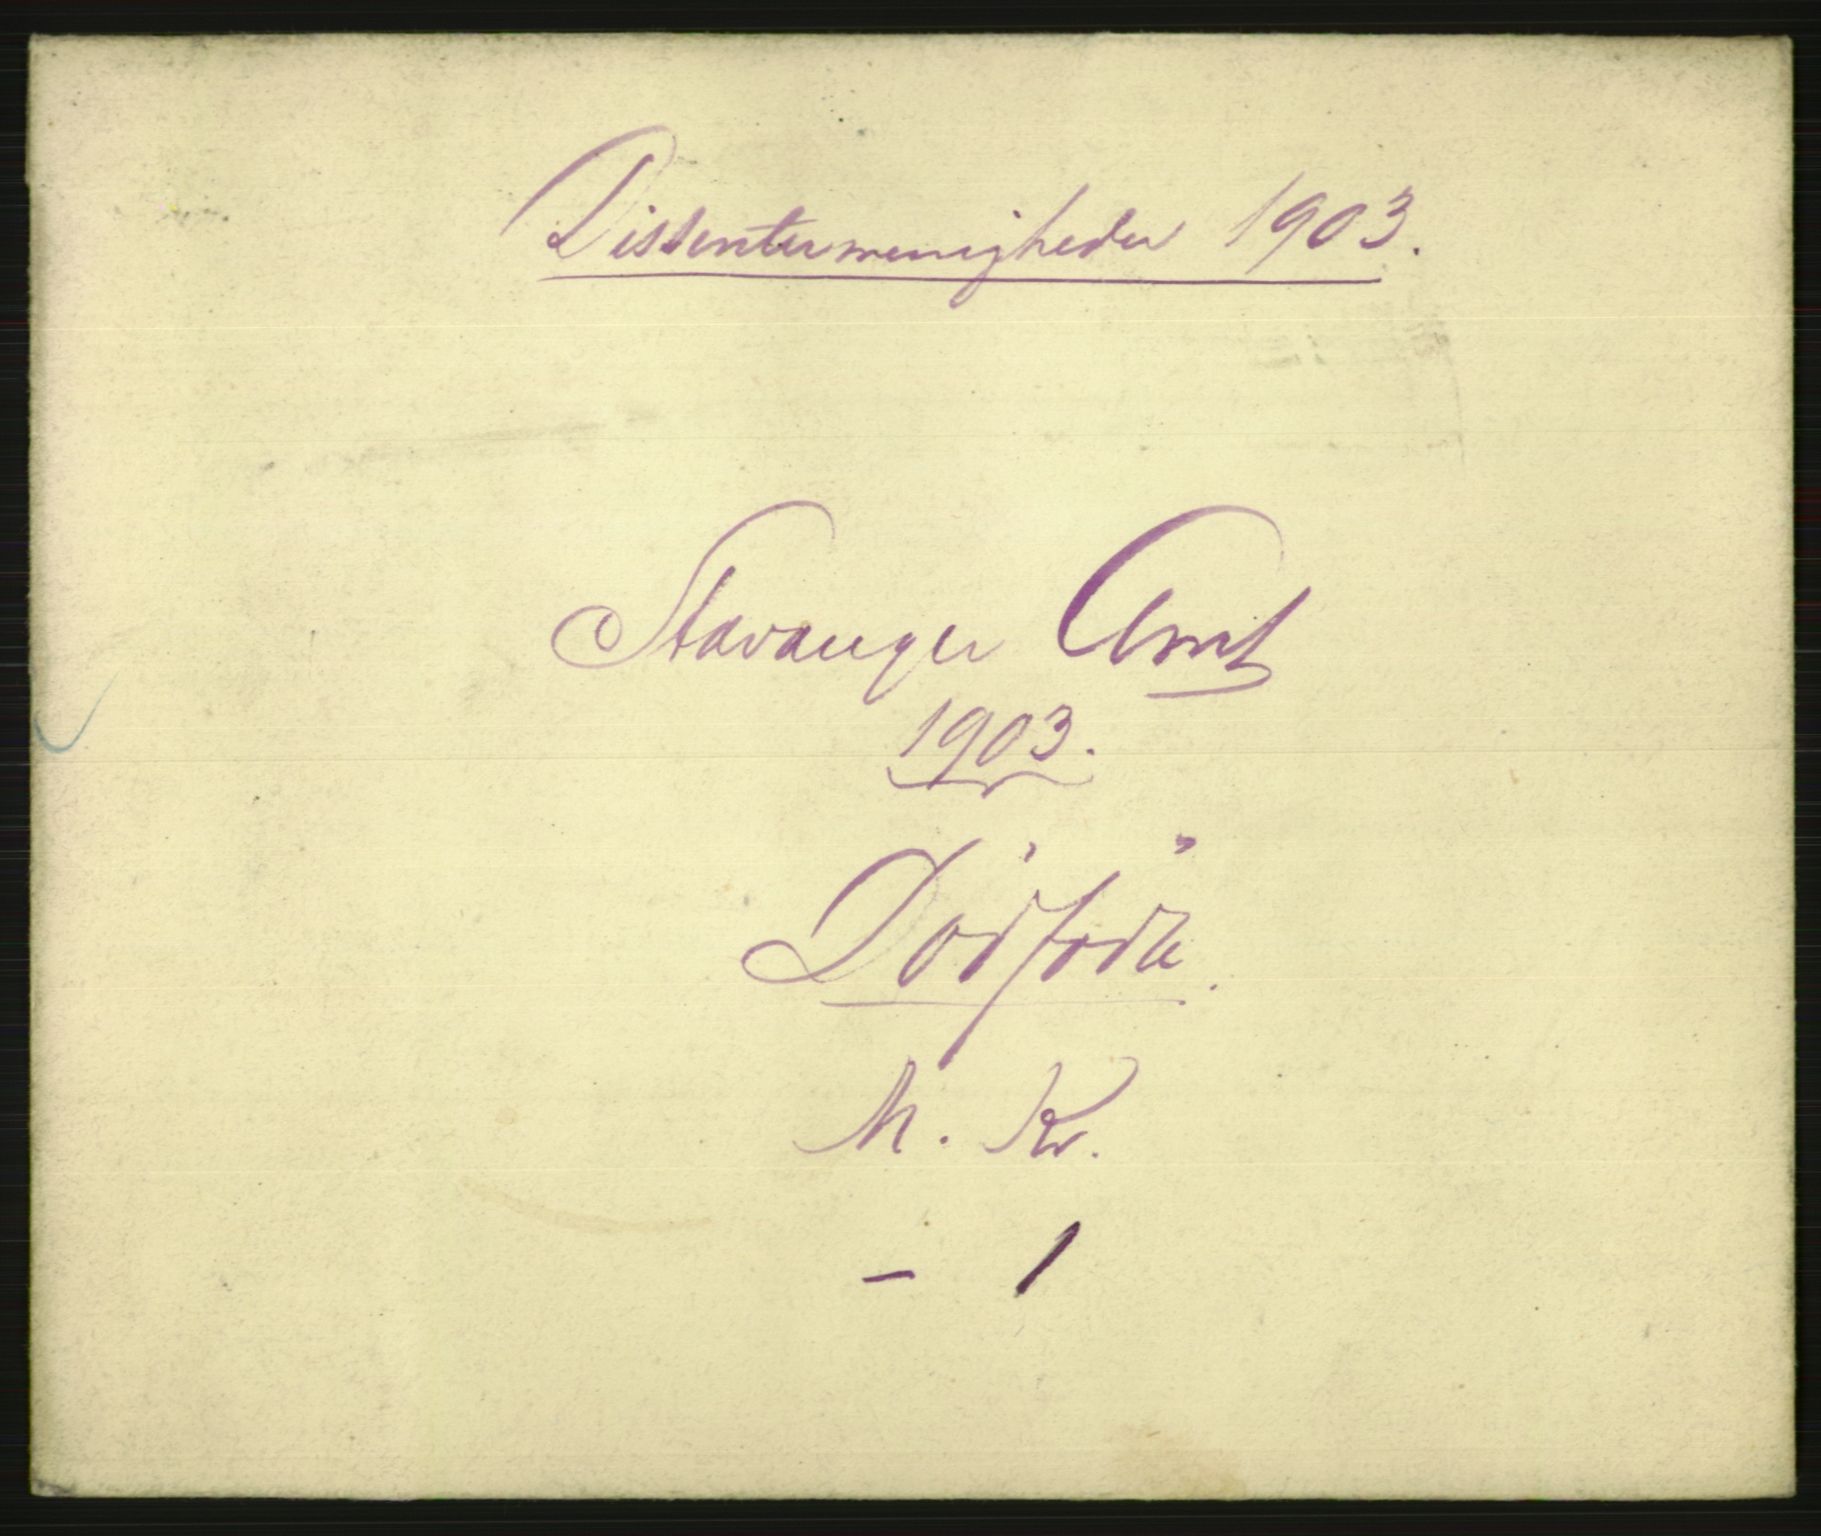 Dissentermenigheder 1903.
Stavanger Amt
1903.
Dödföde.
M. Kr.
– 1